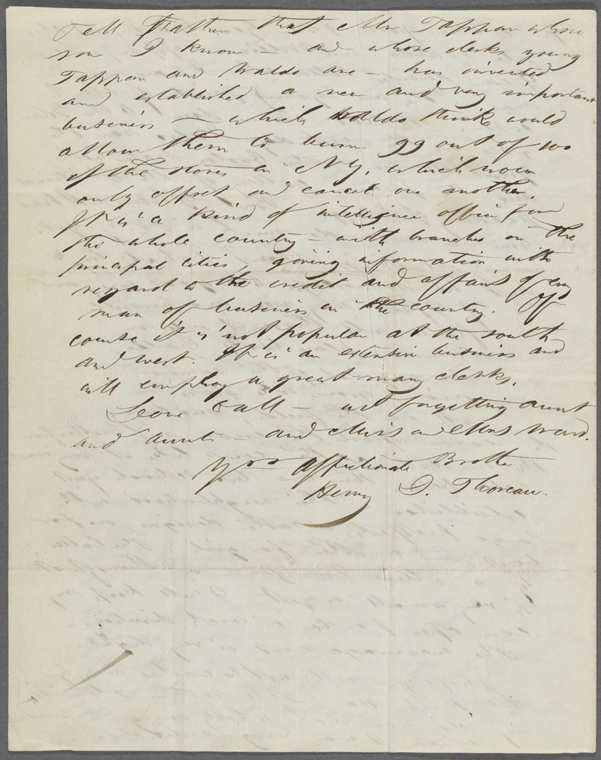 Tell Father that Mr Tappan whose
son I know — and whose clerks young
Tappan and Waldo are — has invented
and established a new and very important
business — which Waldo thinks would
allow them to burn 99 out of 100
of the stores in N.Y., which now
only offset and cancel one another.
It is a kind of intelligence office for
the whole country — with branches in the
principal cities giving information with
regard to the credit and affairs of every
man of business in the country. Of
course it is not popular at the south
and west. It is an extensive business and
will employ a great many clerks.
Love to all — not forgetting aunt
and aunts — and Miss and Mrs Ward.
Yrs affectionate Brother
Henry D. Thoreau.